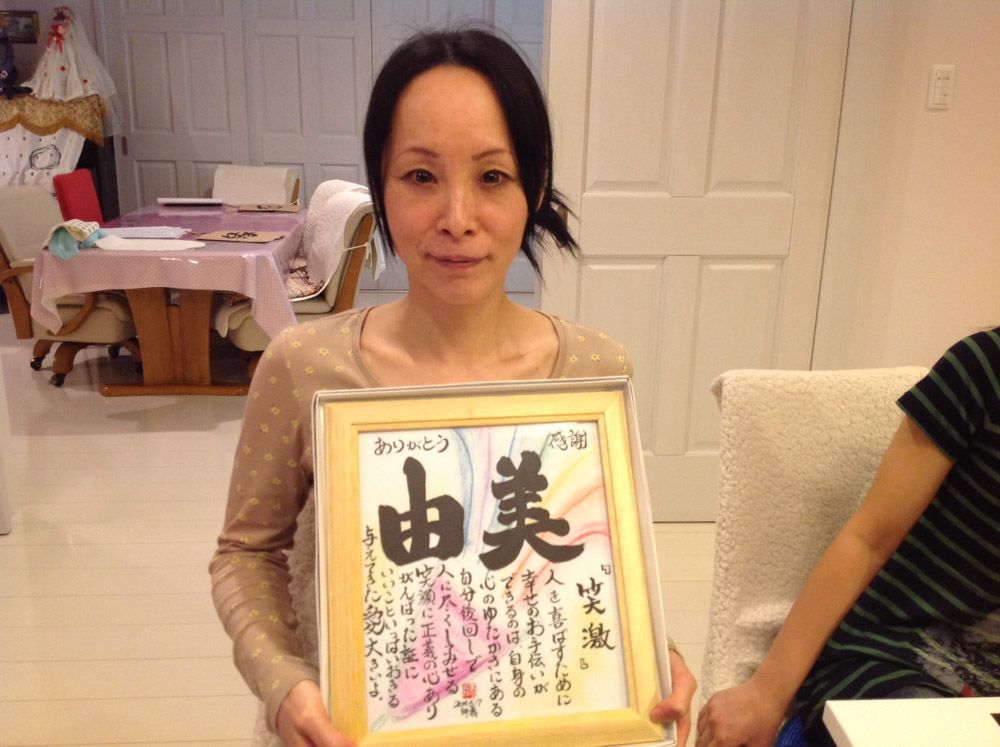 ありがとう
感謝
由美
『笑激』
人を喜ばすために
幸せのお手伝いが
できるのは、自身の
心のゆたかさにある
自分後回しで
人に尽くしてみせる
笑顔に正義の心あり
がんばった証に
いいこといっぱいおきる
与えてきた愛大きいよ。